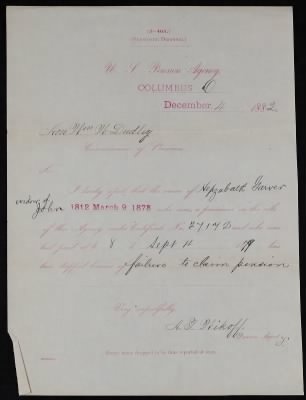 (3—403.)
U. S. Pension Agency,
COLUMBUS O
December 4 1882
Hon. Wm W. Dudley
Commissioner of Pensions.
Sir:
I hereby report that the name of Hepzabath Garver
widow of
John 1812 March 9 1878 who was a pensioner on the rolls
of this Agency under Certificate No. 27172 and who was
last paid at $ 8 to Sept 4 79 has
been dropped because of failure to claim pension
Very respectfully,
A. T. Wikoff
Pension Agent.
Every name dropped to be thus reported at once.